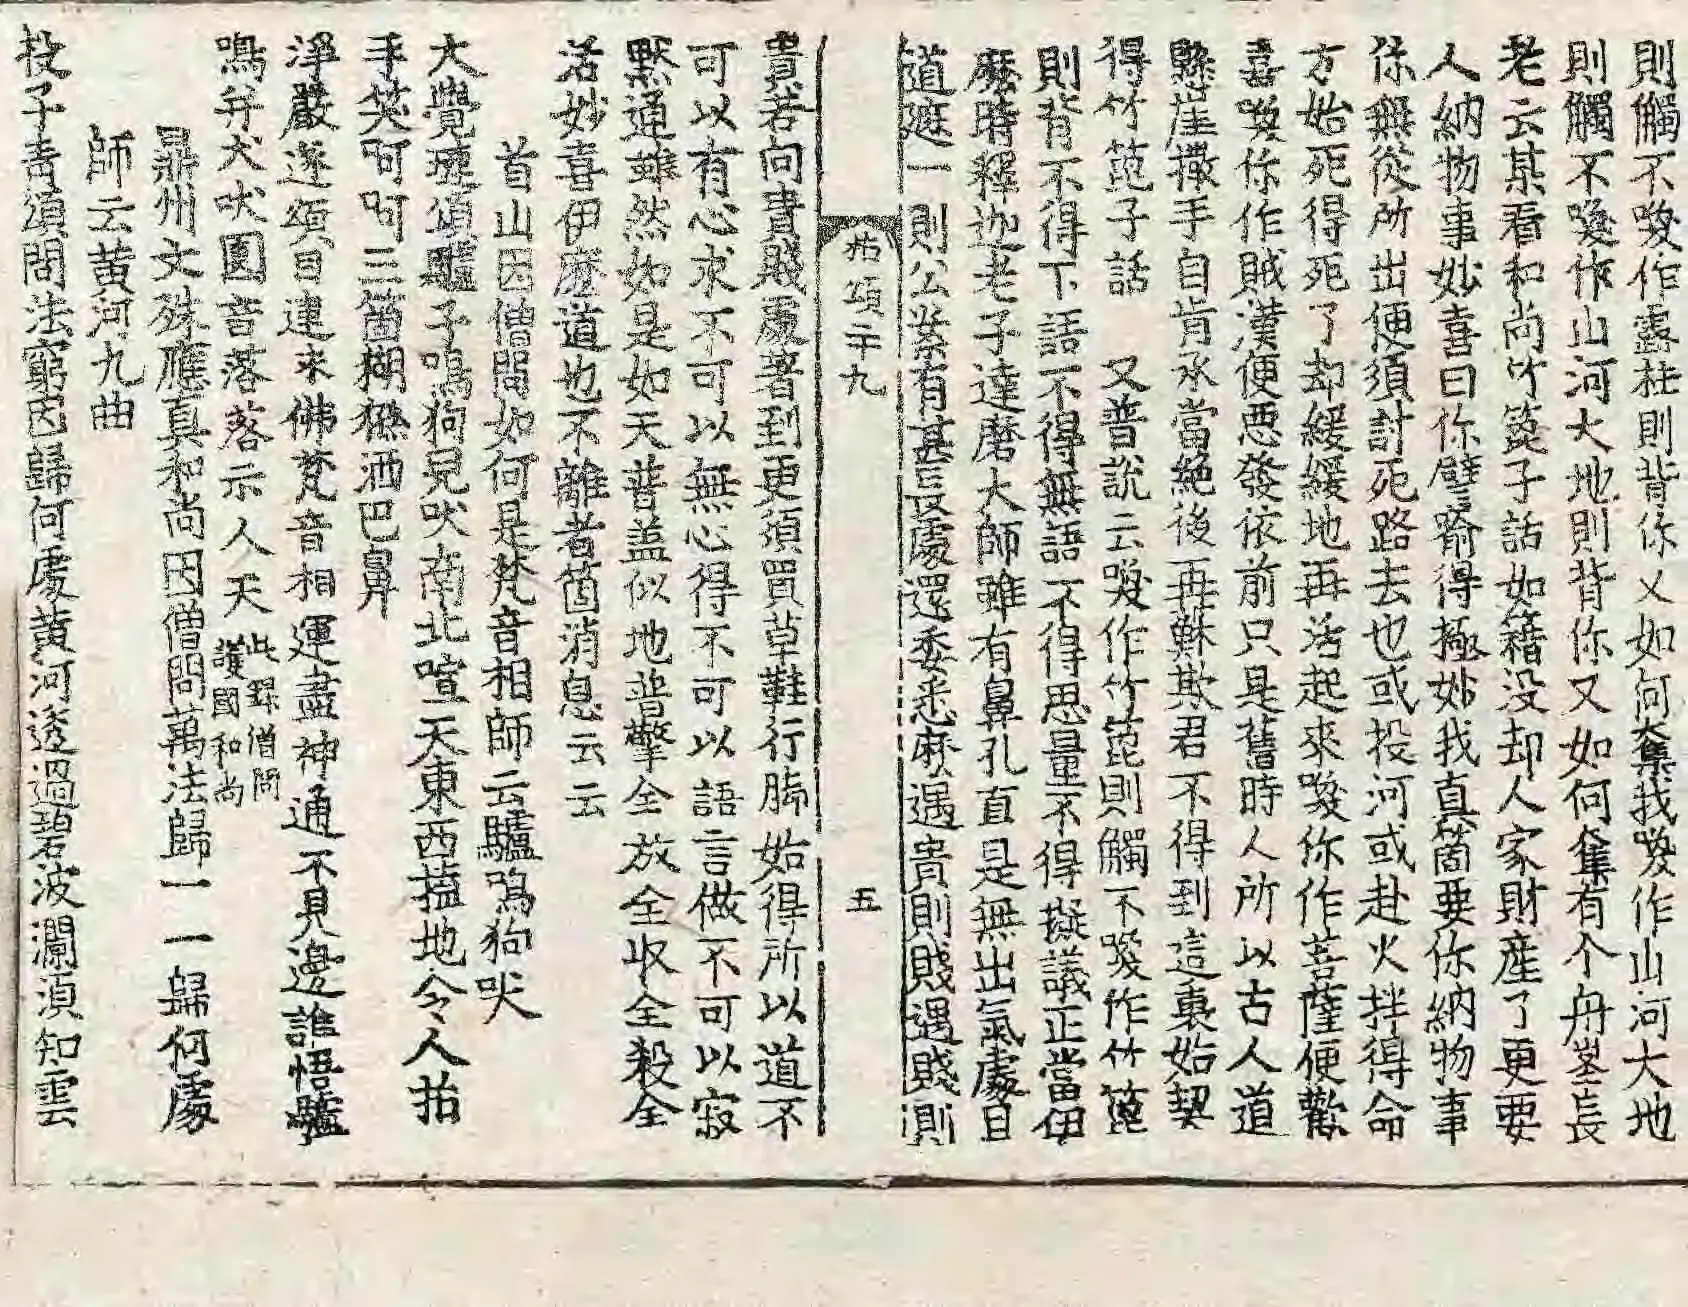 則觸不喚作露柱則背你又如何大集我喚作山河大地
則觸不喚作山河大地則背你又如何奪有个舟峯長
老云某看和尚竹篦子話如籍没却人家財産了更要
人納物事妙喜曰你譬喻得極妙我真箇要你納物事
你無從所出便須討死路去也或投河或赴火拌得命
方始死得死了却緩緩地再活起來喚你作菩薩便歡
喜喚你作賊漢便悪發依前只是舊時人所以古人道
懸崖撒手自肯承當絶後再穌欺君不得到這裏始契
得竹篦子話　又普説云喚作竹篦則觸不喚作竹篦
則背不得下語不得無語不得思量不得擬議正當伊
麼時釋迦老子達磨大師雖有鼻孔直是無出氣處且
道遮一則公案有甚長處還委悉麽遇貴則賤遇賤則
拈頌二十九　五
貴若向貴賤處著到更須買草鞋行脚始得所以道不
可以有心求不可以無心得不可以語言做不可以寂
默通雖然如是如天普盖似地普擎全放全収全殺全
活妙喜伊麼道也不離者箇消息云云
首山因僧問如何是梵音相師云驢鳴狗吠
大覺璉頌驢子鳴狗兒吠南北喧天東西搕地令人拍
手笑呵呵三箇猢猻洒巴鼻
淨嚴遂頌目連來佛梵音相運盡神通不見邊誰悟驢
鳴并犬吠圎音落落示人天此録僧問護國和尚
鼎州文殊應真和尚因僧問萬法歸一一歸何處
師云黄河九曲
投子青頌問法窮因歸何處黄河透過碧波瀾湏知雲